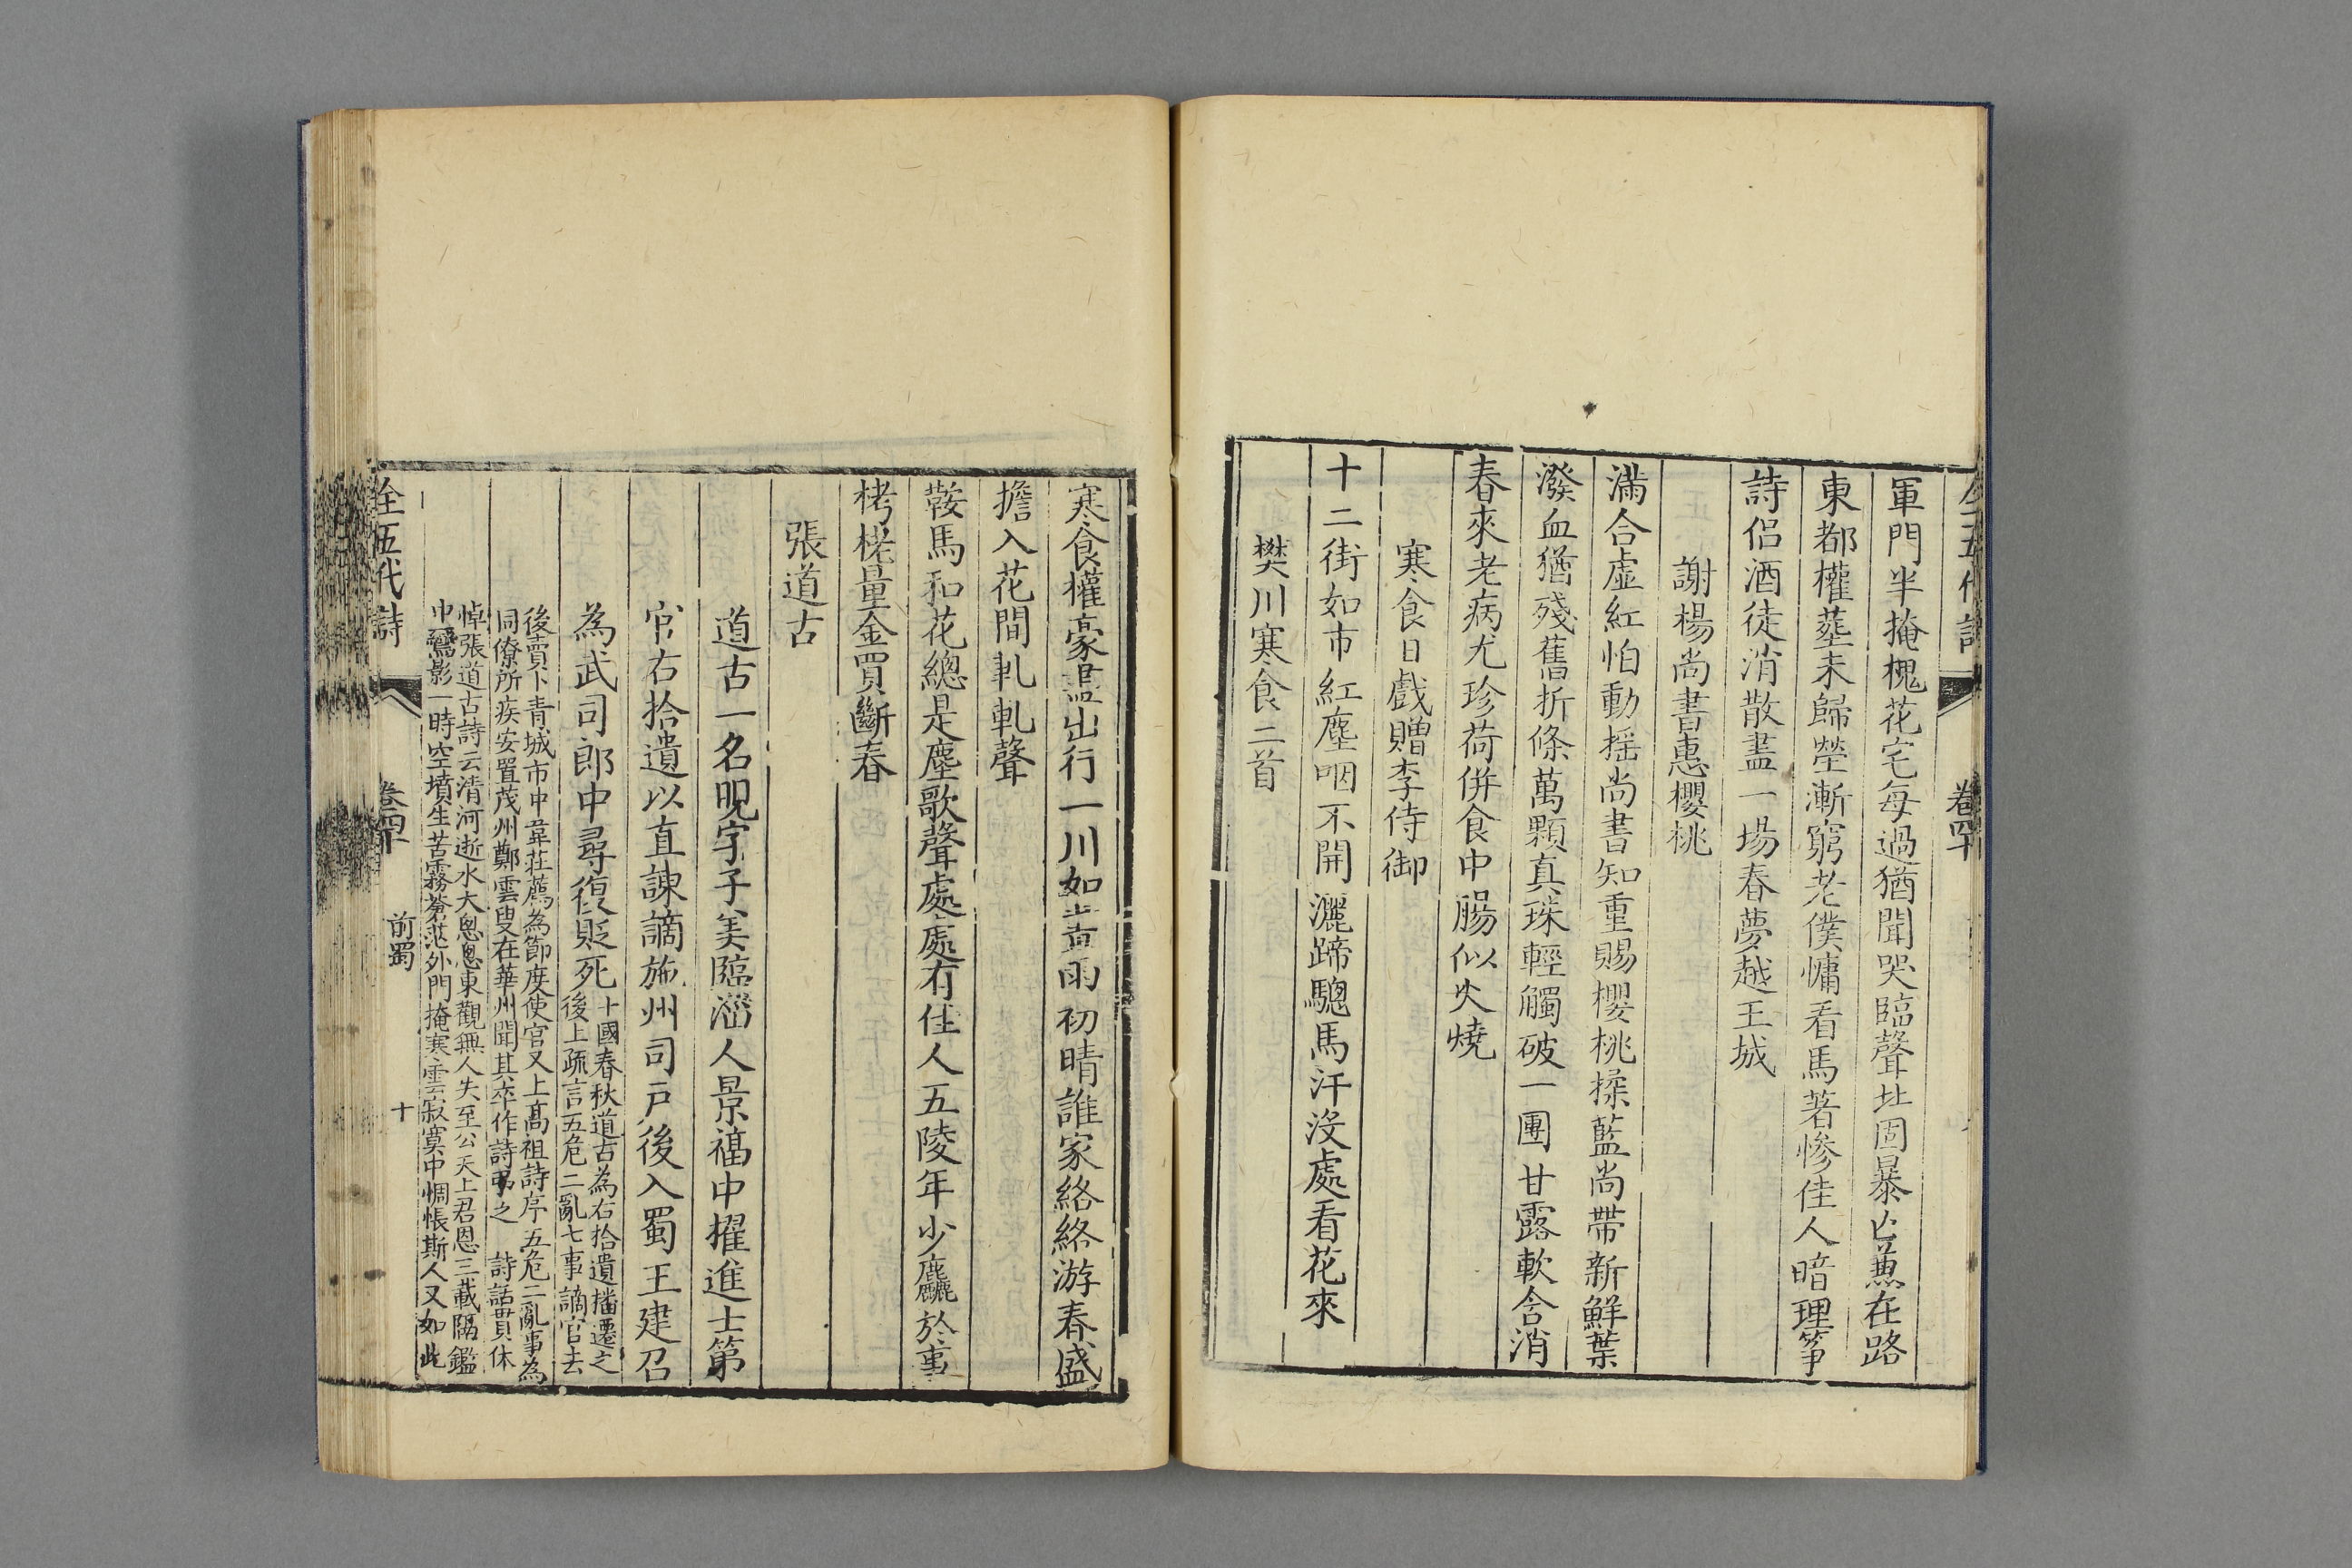 全五代詩
卷四十
軍門半掩槐花宅每過猶聞哭臨聲北固暴亡兼在路
東都權葬未歸塋漸窮老僕慵看馬著慘佳人暗理箏
詩侶酒徒消散盡一場春夢越王城
謝楊尚書惠櫻桃
滿合虛紅怕動搖尚書知重賜櫻桃揉藍尚帶新鮮葉
潑血猶殘舊折條萬顆真珠輕觸破一團甘露軟含消
春來老病尤珍荷併食中腸似火燒
寒食日戲贈李侍御
十二街如市紅塵咽不開灑蹄驄馬汗沒處看花來
樊川寒食二首
寒食權豪盡出行一川如畫雨初晴誰家絡絡游春盛
擔入花間軋軋聲
鞍馬和花總是塵歌聲處處有佳人五陵年少麤於事
栲栳量金買斷春
張道古
道古一名晛字子美臨淄人景福中擢進士第
官右拾遺以直諫謫施州司戶後入蜀王建召
為武司郎中尋復貶死
十國春秋道古為右拾遺播遷之
後上疏言五危二亂七事謫官去
後賣卜青城市中韋莊薦為節度使官又上高祖詩序五危二亂事為
同僚所疾安置茂州鄭雲叟在華州聞其卒作詩弔之 詩話貫休
悼張道古詩云清河逝水大悤悤東觀無人失至公天上君恩三載隔鑑
中鸞影一時空墳生苦霧蒼茫外門掩寒雲寂寞中惆悵斯人又如此
全五代詩
卷四十
前蜀
十